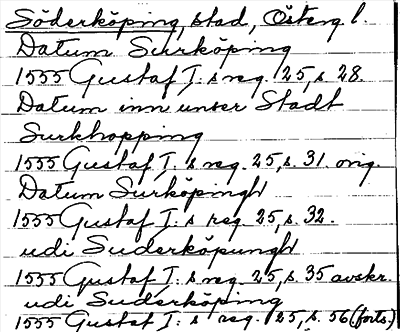 Söderköping, stad, Österg l.
Datum Surköping
1555 Gustaf I: s reg. 25, s. 28.
Datum inn unser Stadt
Surkhopping
1555 Gustaf I: s reg. 25, s. 31. orig.
Datum Surköpingh
1555 Gustaf I: s reg. 25, s. 32.
udi Suderköpungh
1555 Gustaf I: s reg. 25, s. 35 avskr.
udi Suderköping
1555 Gustaf I: s reg. 25, s. 56 (forts.)